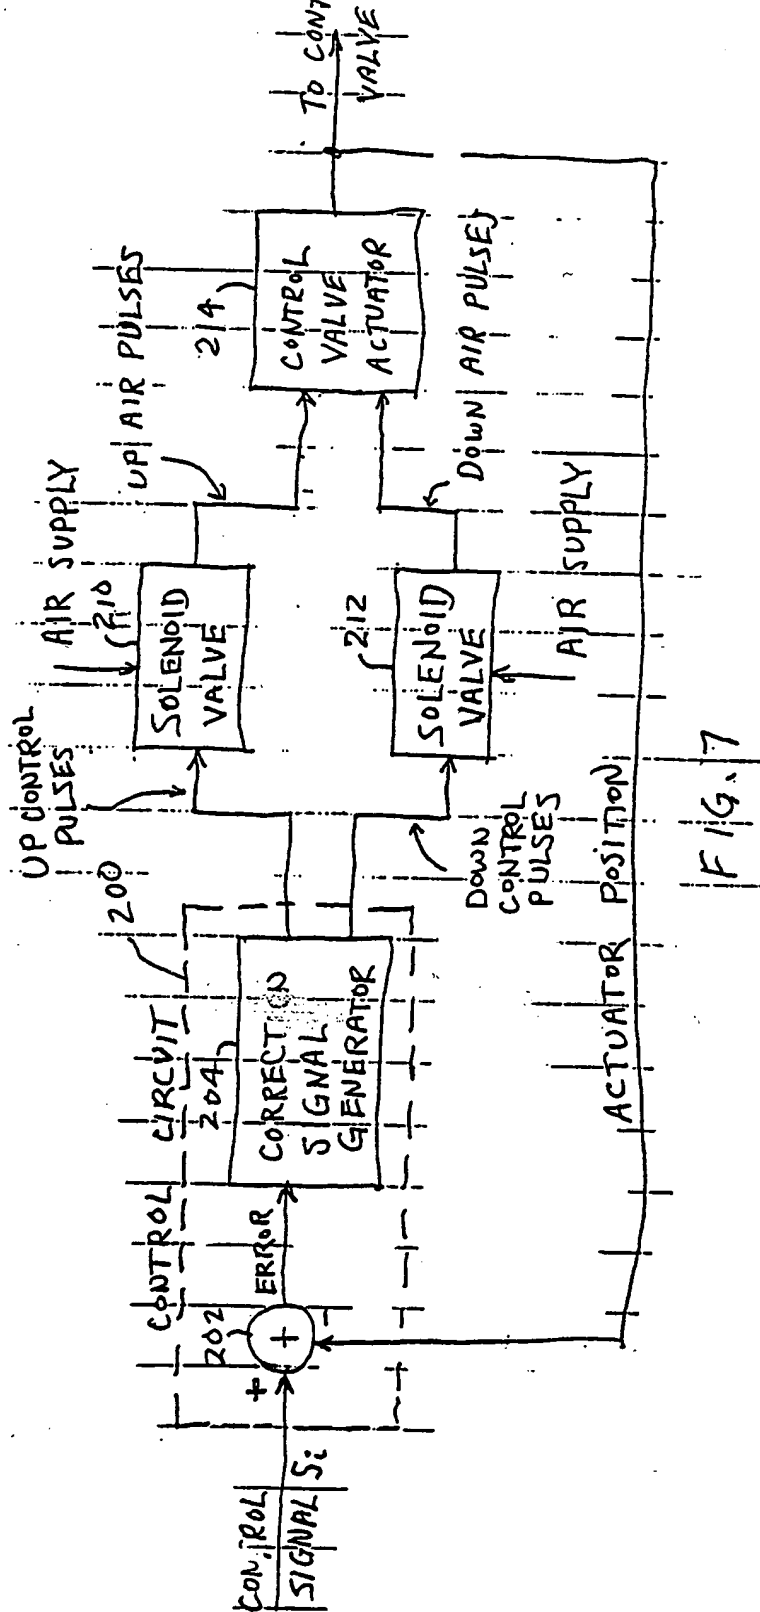 CONTROL
SIGNAL Si
+
202
+
ERROR
CONTROL CIRCUIT
200
204
CORRECTION
SIGNAL
GENERATOR
UP CONTROL
PULSES
DOWN
CONTROL
PULSES
AIR SUPPLY
210
SOLENOID
VALVE
212
SOLENOID
VALVE
AIR SUPPLY
UP AIR PULSES
DOWN AIR PULSES
214
CONTROL
VALVE
ACTUATOR
TO CONT
VALVE
ACTUATOR POSITION
FIG. 7